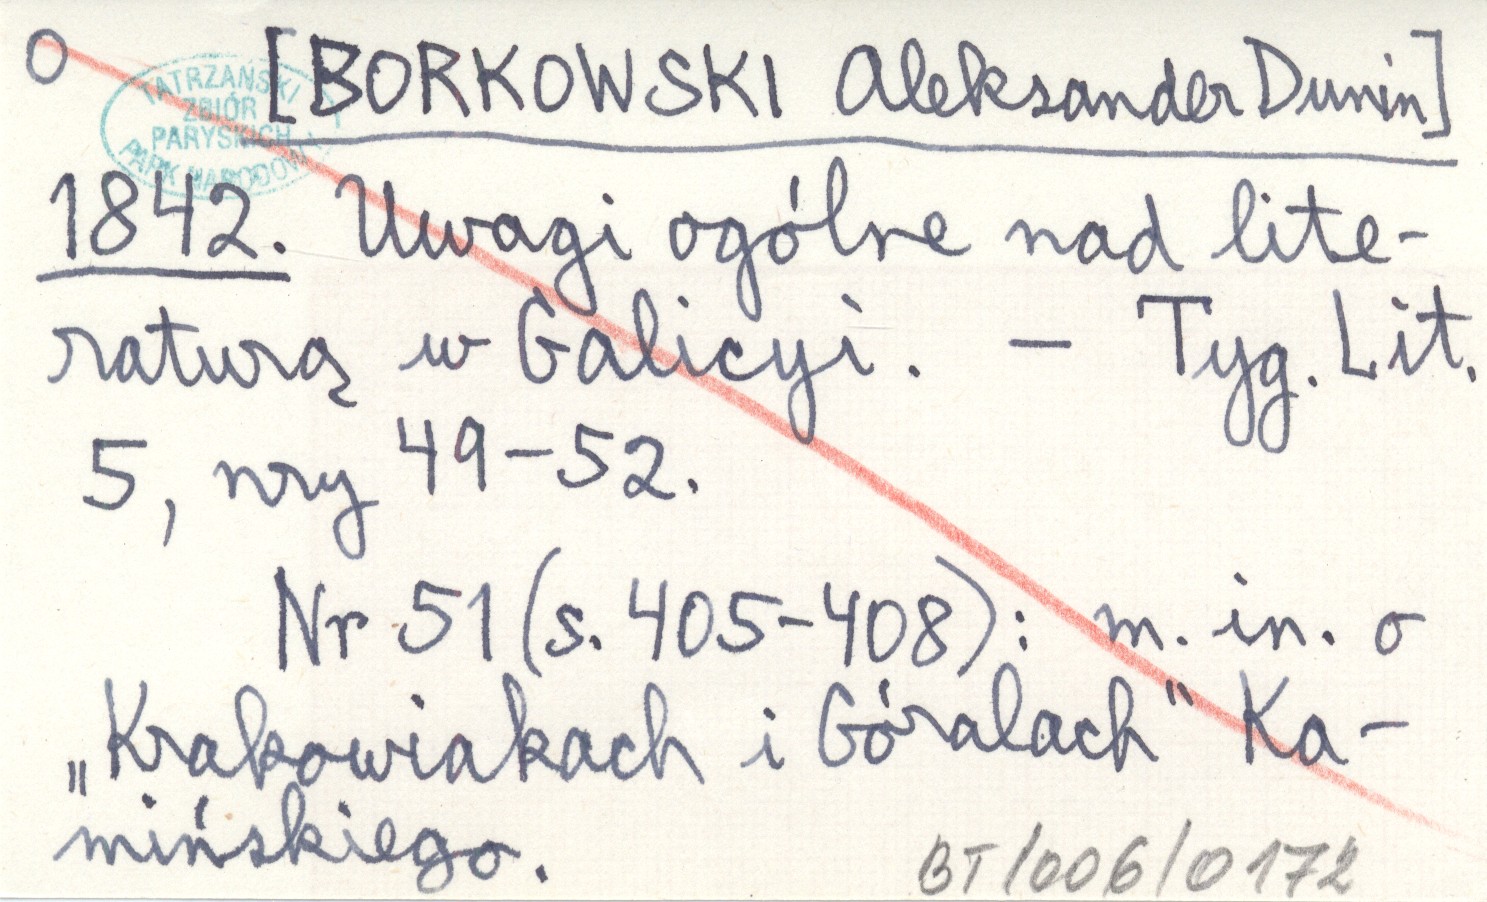 O [BORKOWSKI Aleksander Dunin]
TATRZAŃSKI
ZBIÓR
PARYSKICH
PARK NARODOWY
1842. Uwagi ogólne nad lite-
raturą w Galicyi. - Tyg. Lit.
5, nry 49-52.
Nr 51 (s. 405-408): m. in. o
„Krakowiakach i Góralach" Ka-
mińskiego.
BT/006/0172